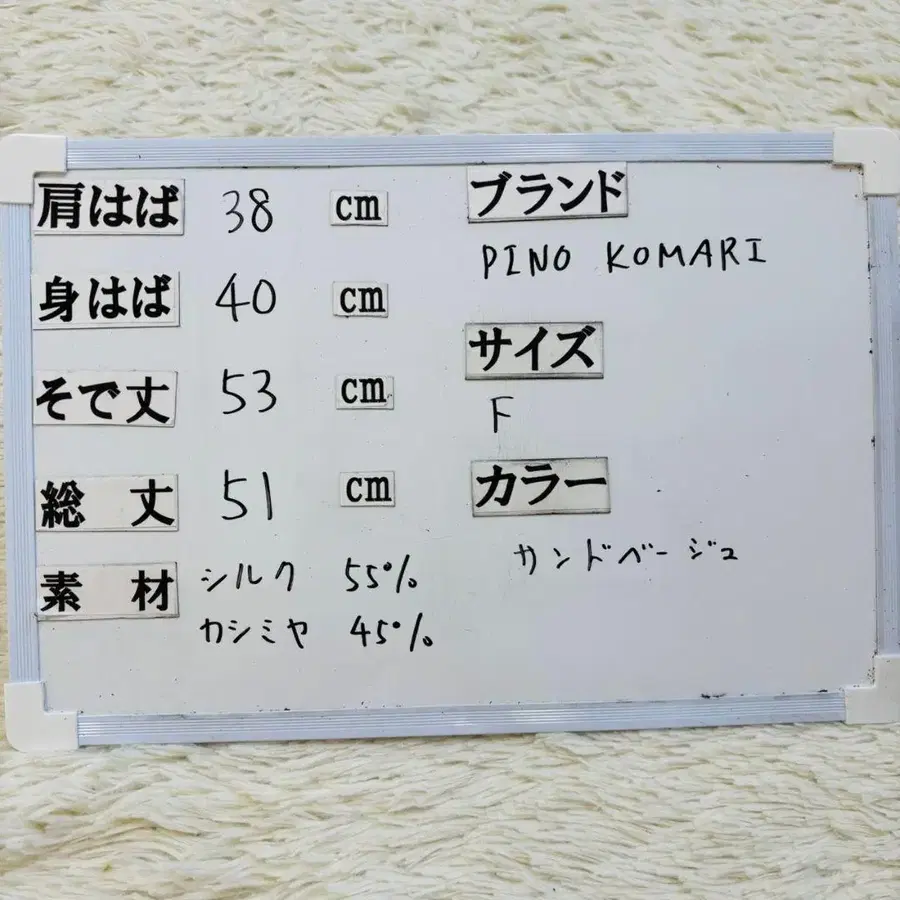 肩はば 38 cm
身はば 40 cm
そで丈 53 cm
総丈 51 cm
素材 シルク 55%
カシミヤ 45%
ブランド
PINO KOMARI
サイズ
F
カラー
サンドベージュ